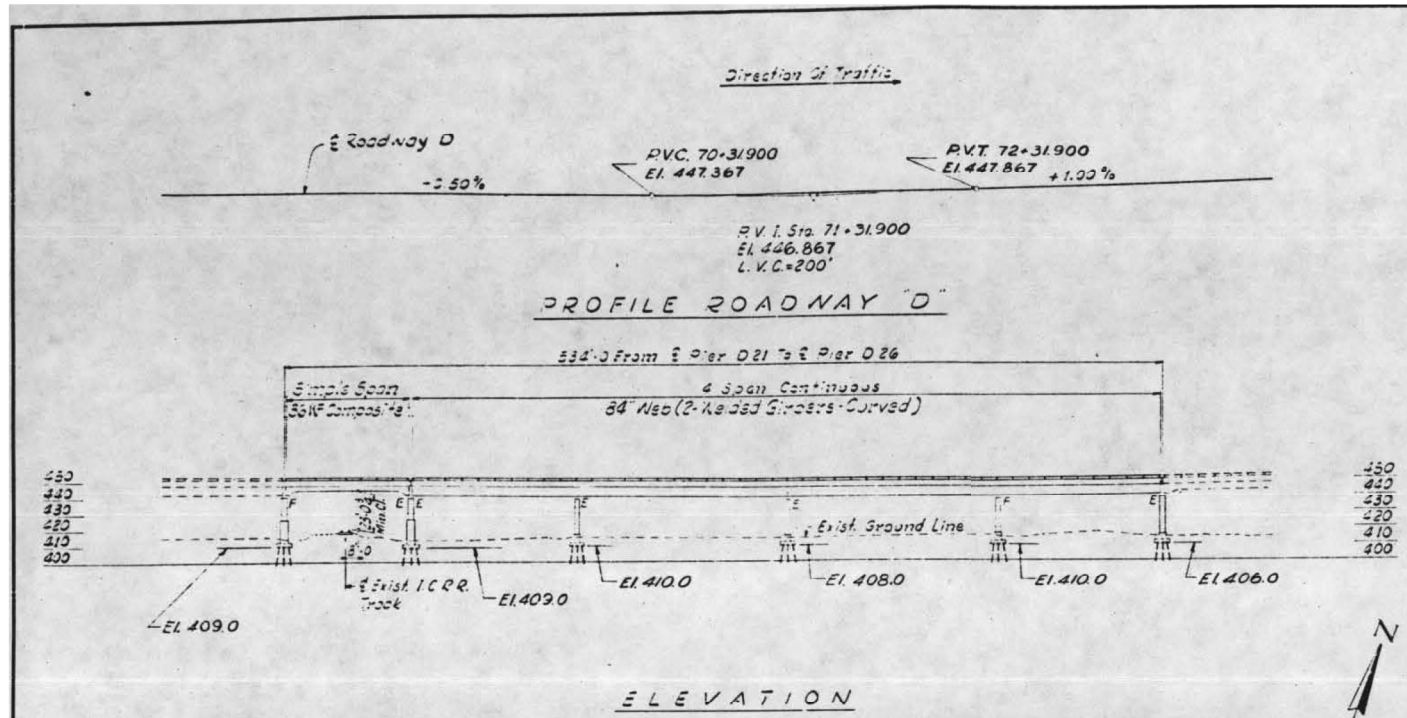 Direction Of Traffic
℄ Roadway D
-0.50%
P.V.C. 70+31.900
El. 447.367
P.V.T. 72+31.900
El. 447.867
+1.00%
P.V.I. Sta. 71+31.900
El. 446.867
L.V.C.=200'
PROFILE ROADWAY "D"
534'-0 From ℄ Pier D21 To ℄ Pier D26
Simple Span
4 Span Continuous
36 WF Composite
84" Web (2-Welded Girders-Curved)
450
440
430
420
410
400
450
440
430
420
410
400
F
E
E
E
E
F
E
Min. Cl.
Exist. Ground Line
℄ Exist. I.C.R.R.
Track
El. 409.0
El. 409.0
El. 410.0
El. 408.0
El. 410.0
El. 406.0
N
ELEVATION